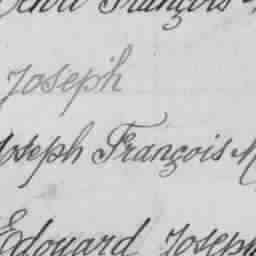 Henri François
Joseph
Joseph François M
Edouard Joseph